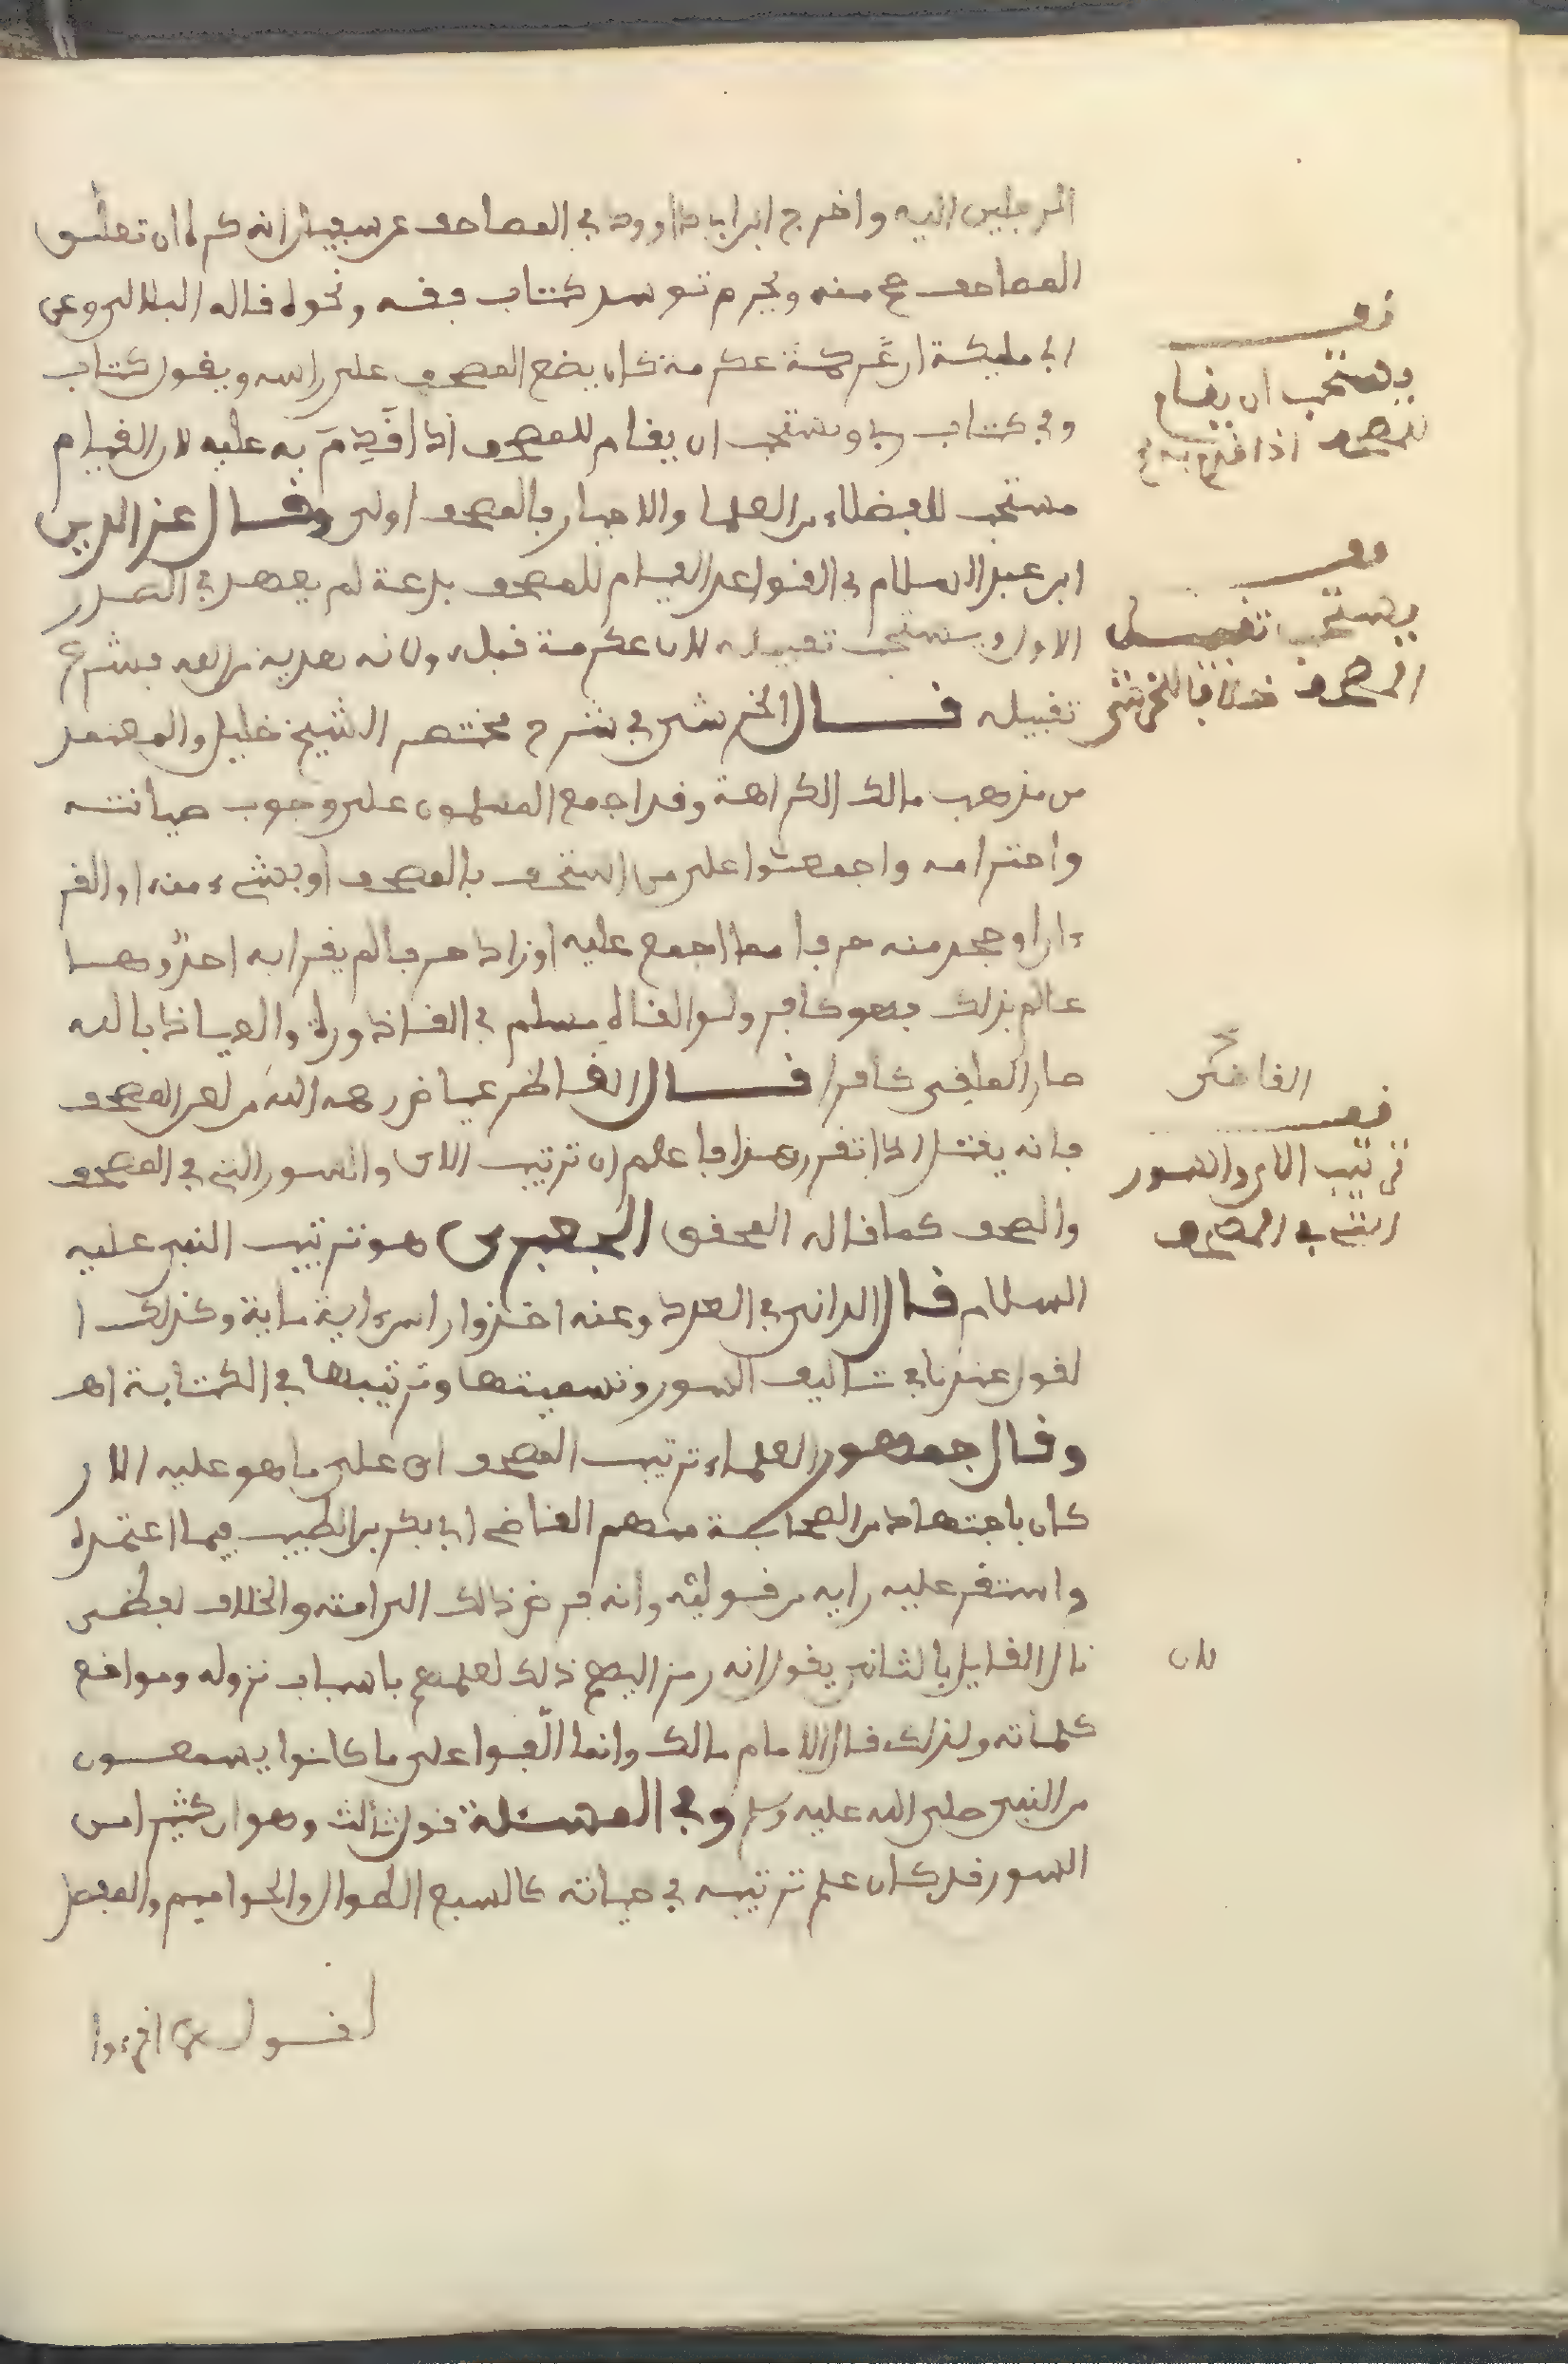 الرجلين اليه واخرج ابن ابي داوود في المصاحف عن سفيان انه كره ان تعلق
المصاحف صح منه ويحرم توسد كتاب فقه ونحوه قاله البلالي وعن
ابي مليكة ان عكرمة كان يضع المصحف على راسه ويقول كتاب
وفي كتاب ربي ويستحب ان يقام للمصحف اذا اقدم به عليه لان القيام
مستحب للفضلاء من العلما والاخيار فالمصحف اولى وقال عز الدين
ابن عبد السلام في القواعد القيام للمصحف بدعة لم يعهد في الصدر
الاول ويستحب تقبيله لان عكرمة فعله ولانه هدية من الله فشرع
تقبيله قال الخرشي في شرح مختصر الشيخ خليل والمعتمد
من مذهب مالك الكراهة وقد اجمع المسلمون على وجوب صيانته
واحترامه واجمعوا على من استخف بالمصحف او بشيء منه او القر
ءان او جحد منه حرفا مما اجمع عليه او زاد حرفا لم يقرا به احد وهما
عالم بذلك فهو كافر ولو القاه مسلم في القاذورة والعياذ بالله
صار الملقي كافرا قال القاضي عياض رحمه الله من لعن المصحف
فانه يقتل اذا تقرر هذا فاعلم ان ترتيب الاي والسور التي في المصحف
والصحف كما قاله المحقق الجعبري هو ترتيب النبي عليه
السلام قال الداني في العدد وعنه اخذوا راس ءاية ءاية وكذلك ا
لقول عندنا في تاليف السور وتسميتها وترتيبها في الكتابة اهـ
وقال جمهور العلماء ترتيب المصحف اي على ما هو عليه الان
كان باجتهاد من الصحابة منهم القاضي ابي بكر بن الطيب فيما اعتمده
واستقر عليه رايه من قوليه وانه فرض ذلك الى امته والخلاف لفظي
لان القايل بالثاني يقول انه رمز اليهم ذلك لعلمهم باسباب نزوله ومواقع
كلماته ولذلك قال الامام مالك وانما الفوا على ما كانوا يسمعون
من النبي صلى الله عليه وسلم وفي المسئلة قول ثالث وهو ان كثيرا من
السور قد كان علم ترتيبه في حياته كالسبع الطوال والحواميم والمفصل
لقوله اقرءوا
قف
يستحب ان يقام
للمصحف اذا اقدم به
قف
يستحب تقبيل
المصحف خلافا للخرشي
القاضي
قف
ترتيب الاي والسور
التي في المصحف
لان